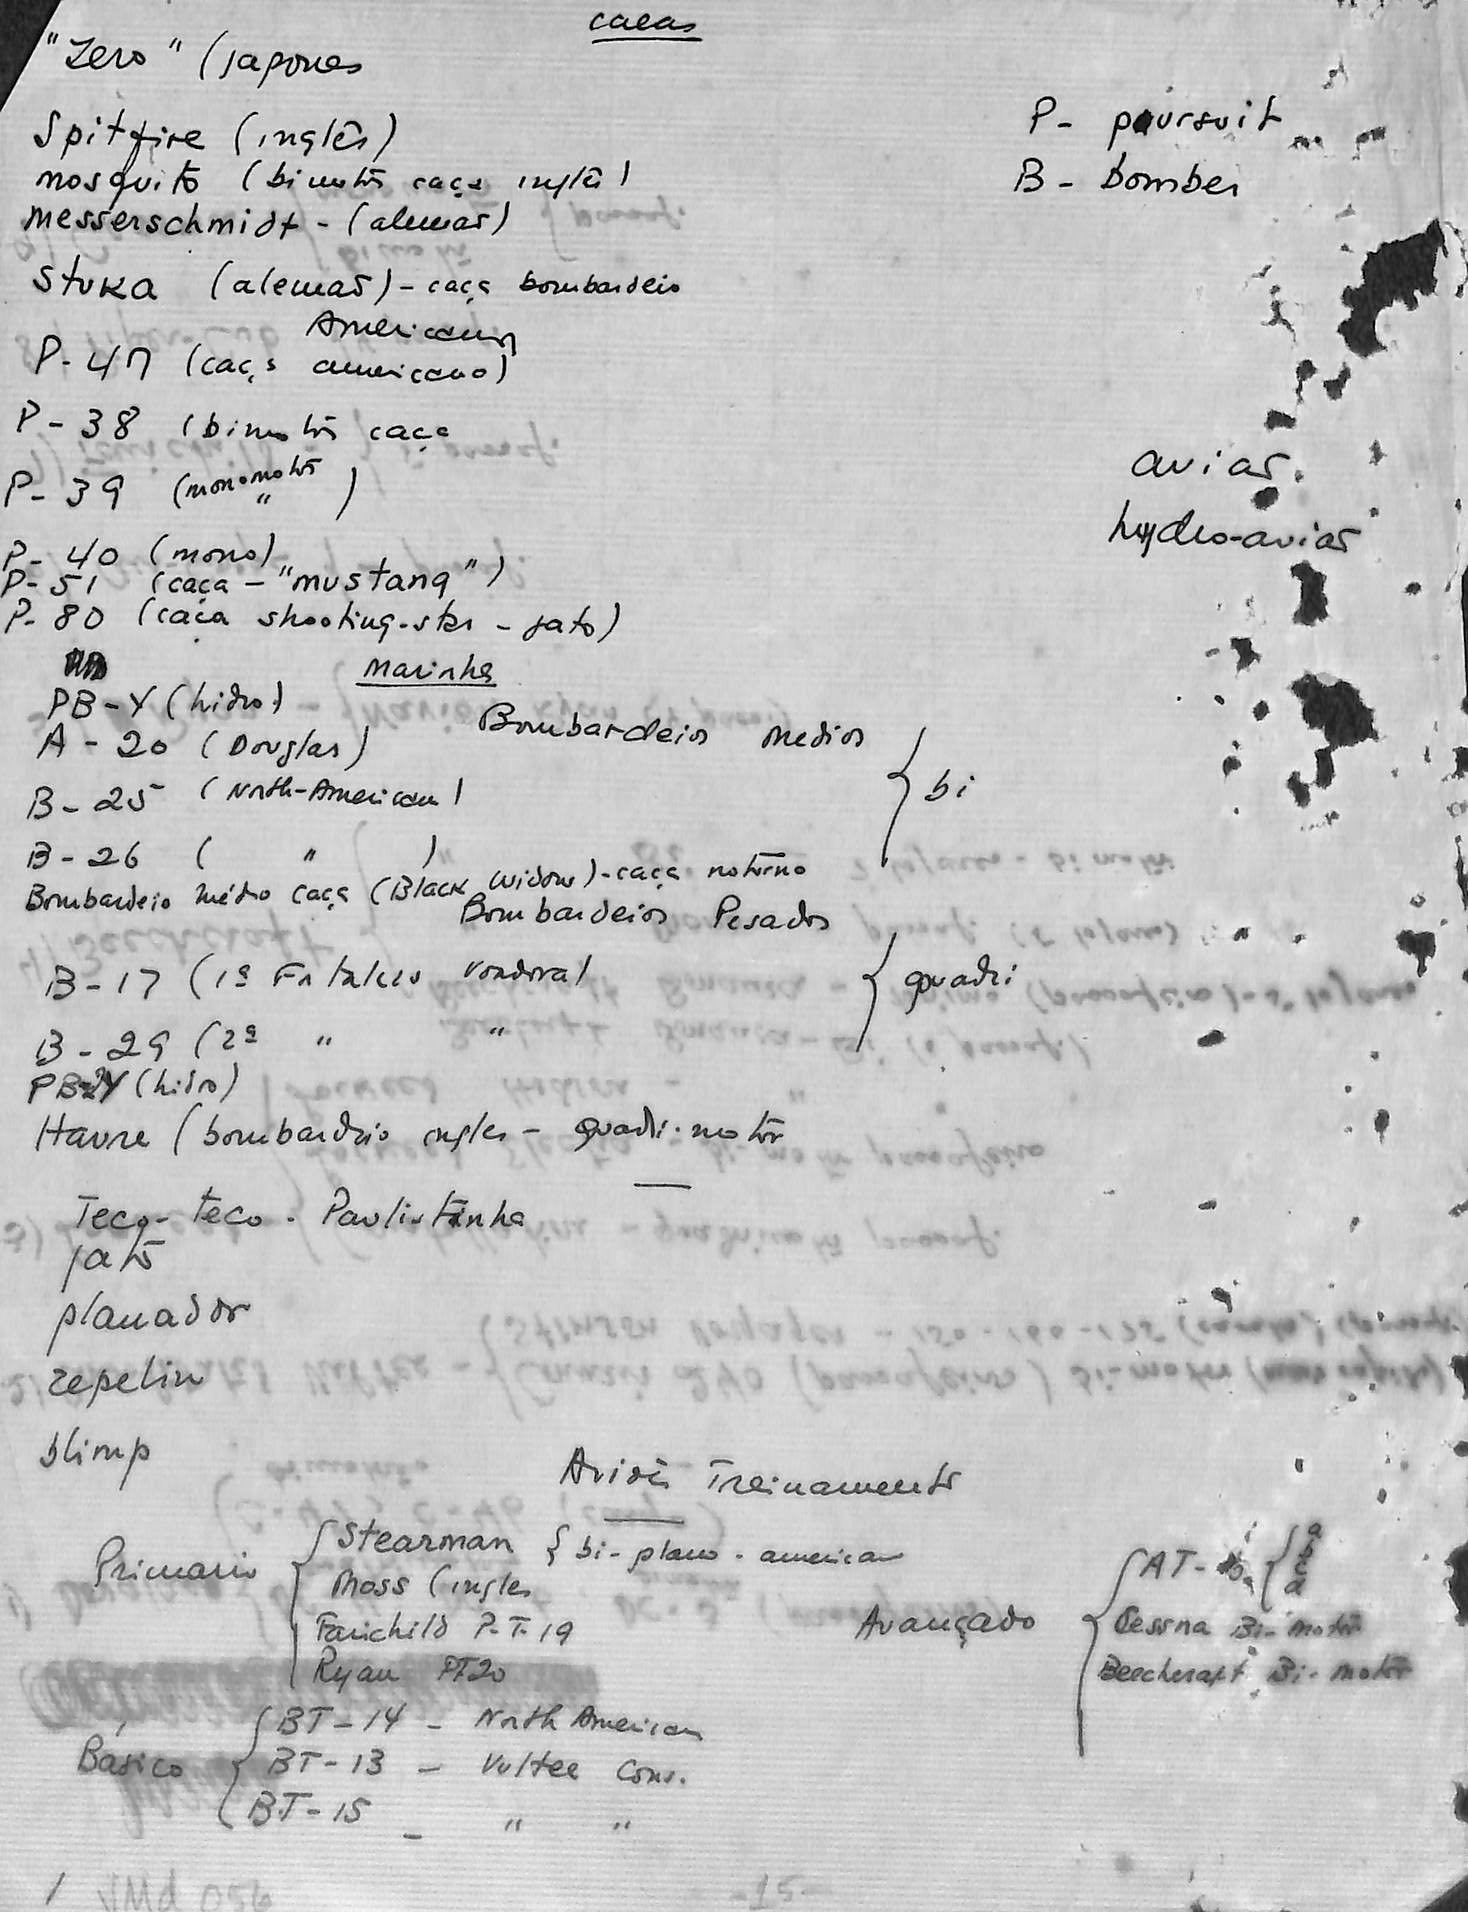 caças
"Zero" (japones
Spitfire (inglês)
mosquito (bimotôr caça inglês)
messerschmidt - (alemão)
stuka (alemão) - caça bombardeio
Americanos
P- 47 (caça americano)
P- 38 (bimotôr caça
P- 39 (monomotôr " )
P- 40 (mono)
P- 51 (caça - "mustang")
P- 80 (caça shooting-star - jato)
marinha
PB-Y (hidro)
Bombardeios medios
A - 20 (Douglas)
B - 25 (North-American)
bi
B - 26 ( " )
Bombardeio médio caça (Black widow) - caça noturno
Bombardeios Pesados
B - 17 (1ª Fortaleza voadora)
quadri
B - 29 (2ª " "
PB2Y (hidro)
Havre (bombardeio ingles - quadi-motôr
Teco-teco - Paulistinha
jato
planador
zepelin
blimp
P- poursuit
B - bomber
avião.
hydro-avião
Aviões Treinamento
Primario
Stearman { bi-plano - american
Moss (ingles
Fairchild P.T. 19
Ryan PT20
Avançado
AT - 6 { a b c d
Cessna Bi-motôr
Beechcraft Bi-motôr
Básico
BT - 14 - North American
BT - 13 - Vultee Cons.
BT - 15 - " "
VMd 056
-15-